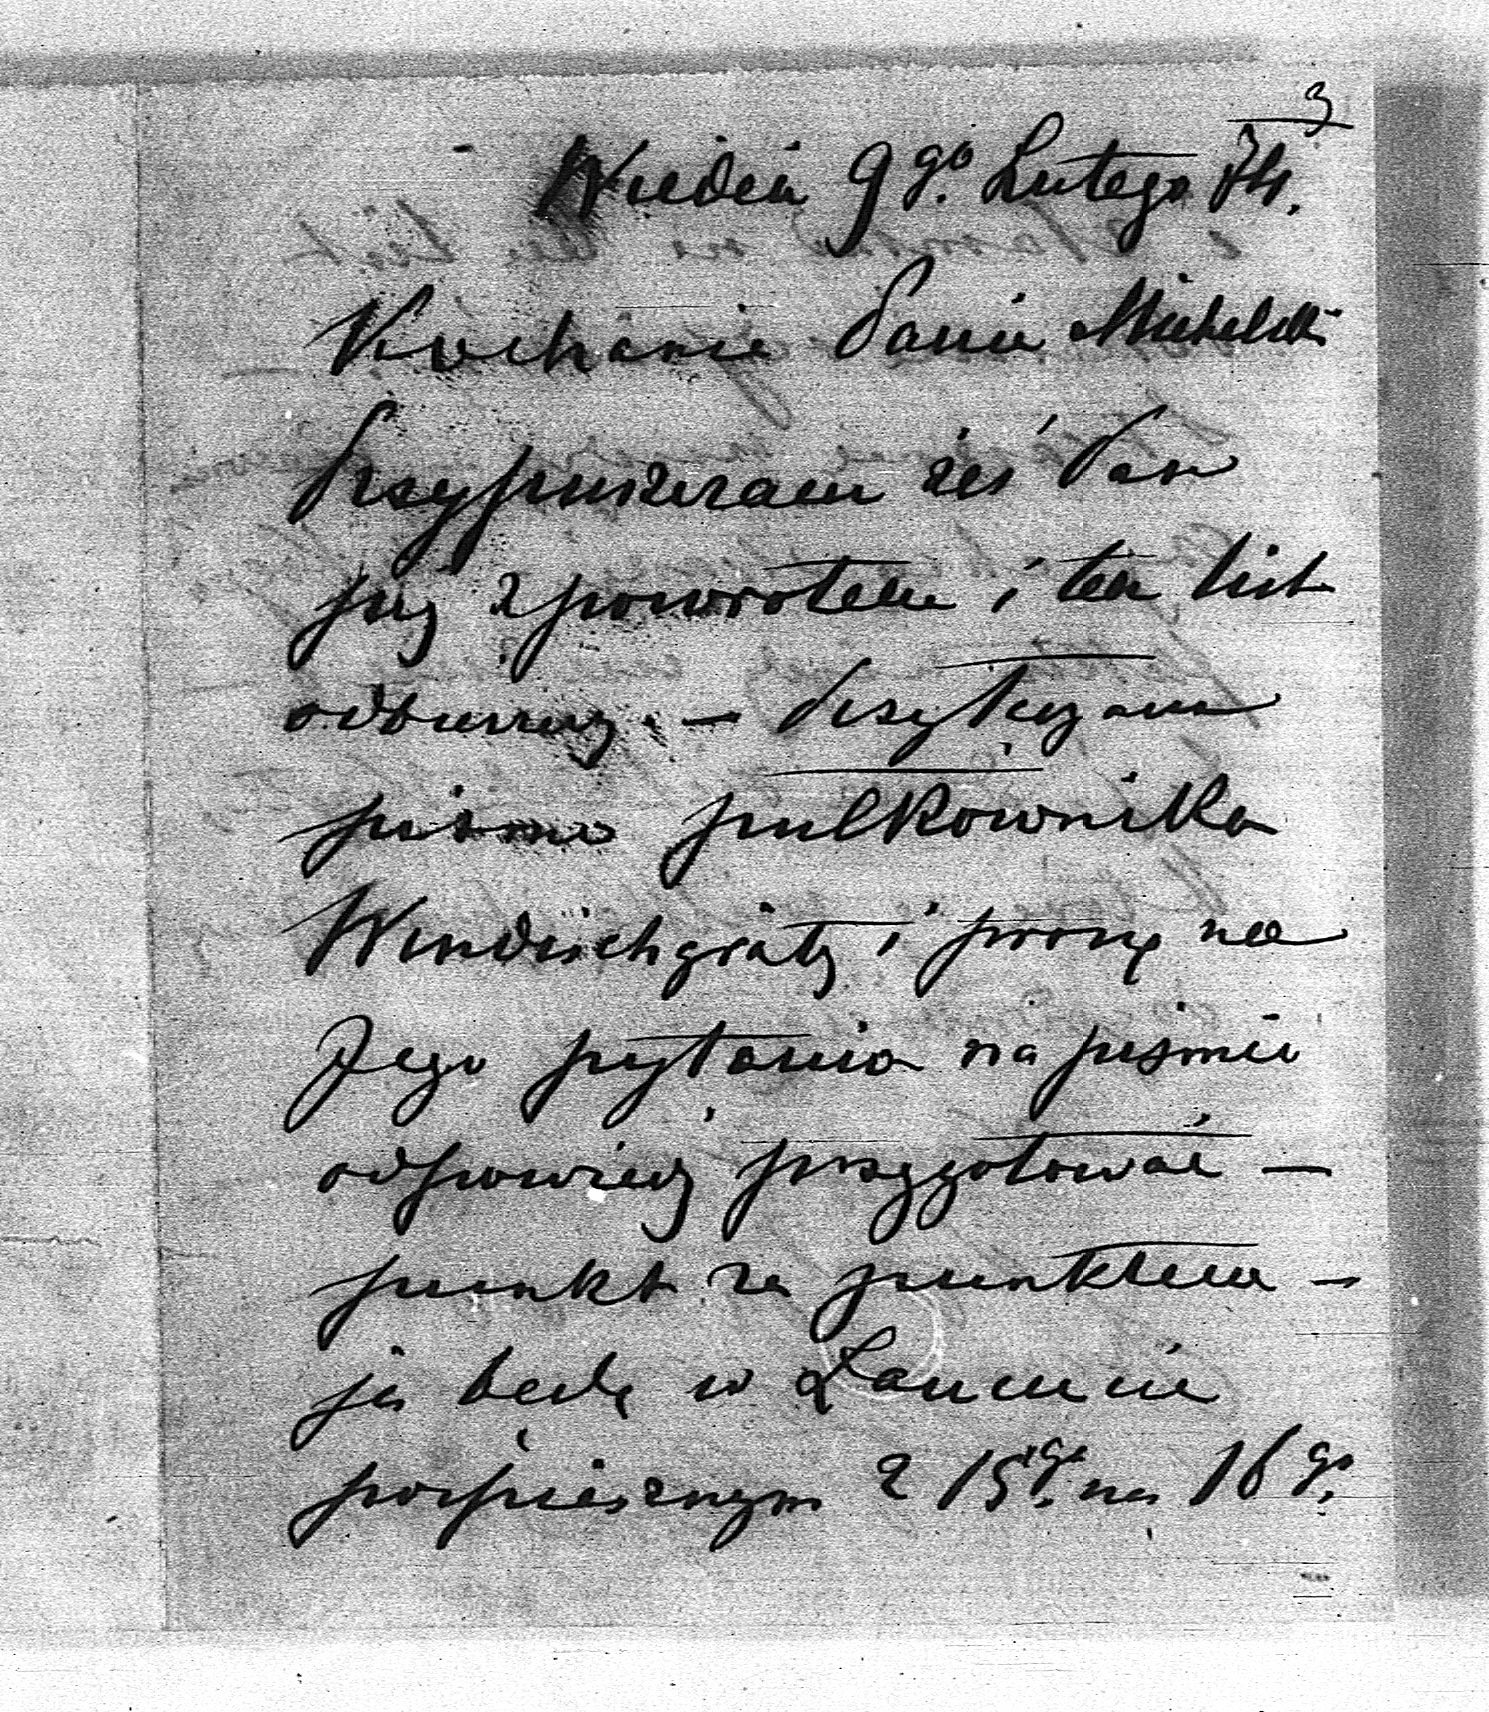 3
Wiedeń 9go Lutego 74.
Kochanie Panie
Przypuszczam żeś Pan
już z powrotem i ten list
odbierzesz. — Przyłączam
pismo pułkownika
Windischgrätz i proszę na
Jego pytania na piśmie
odpowiedź przygotować —
punkt za punktem —
ja będę w Łańcucie
pospiesznym z 15go na 16go.